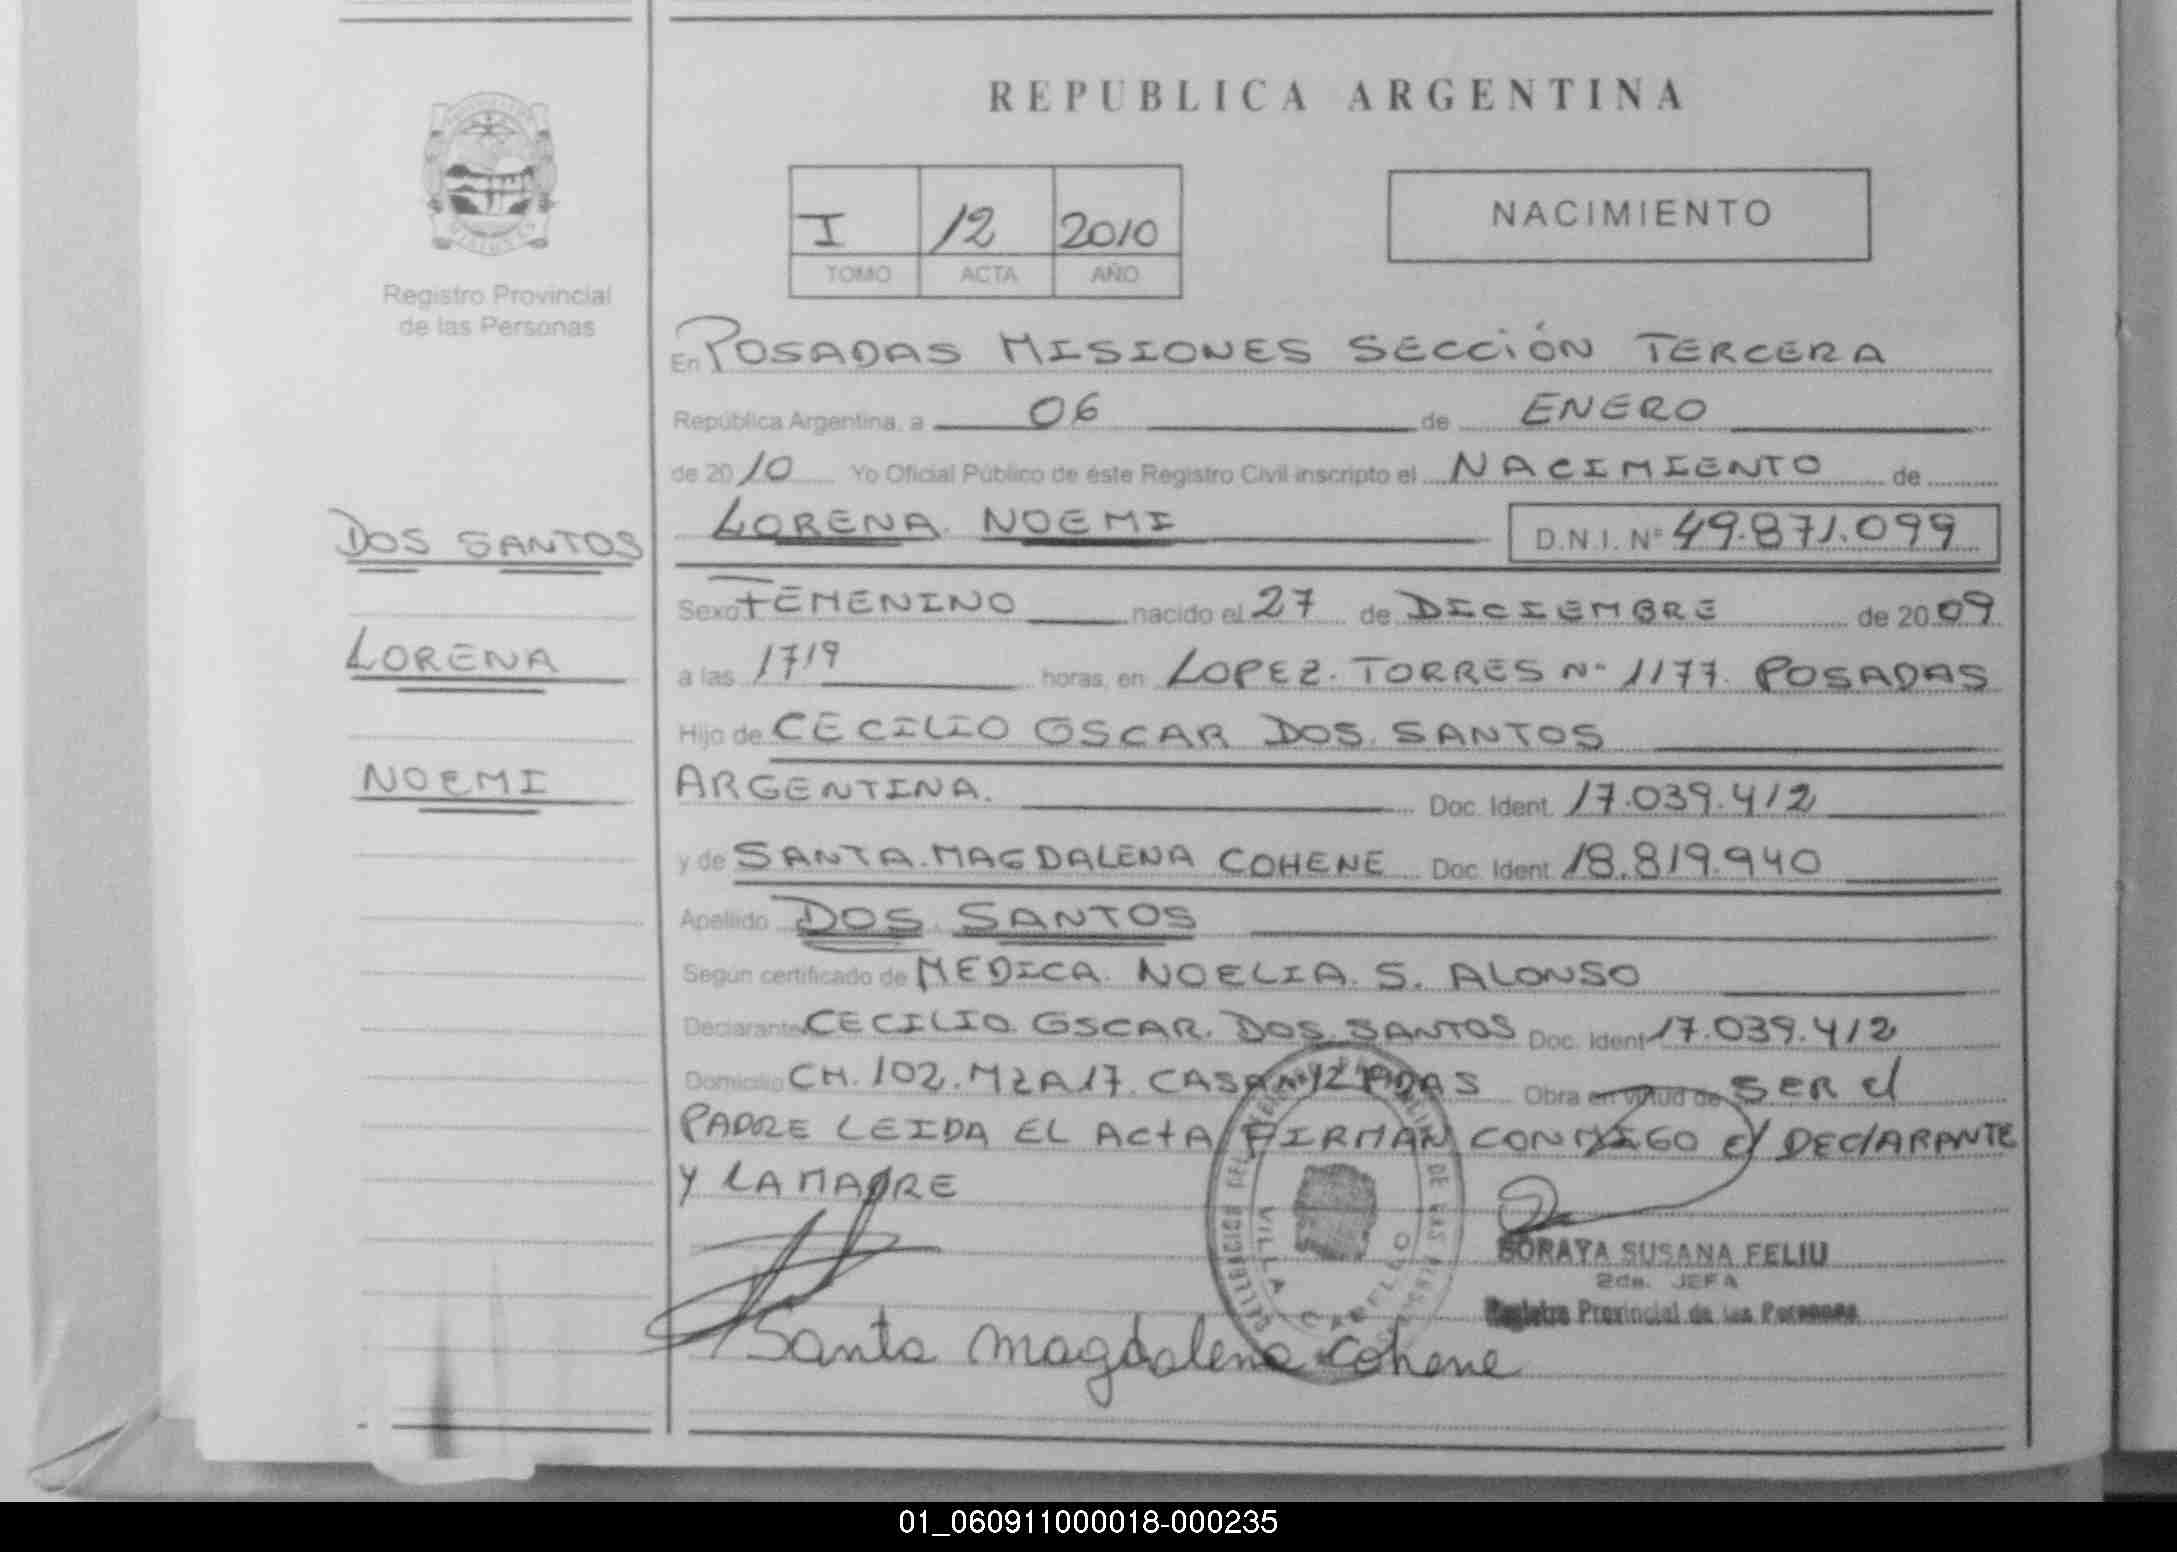 REPUBLICA ARGENTINA
I 12 2010
TOMO ACTA AÑO
NACIMIENTO
Registro Provincial
de las Personas
En POSADAS MISIONES SECCIÓN TERCERA
República Argentina, a 06 de ENERO
de 2010 Yo Oficial Público de éste Registro Civil inscripto el NACIMIENTO de
LORENA NOEMI D.N.I. Nº 49.871.099
DOS SANTOS
LORENA
NOEMI
Sexo FEMENINO nacido el 27 de DICIEMBRE de 2009
a las 1719 horas, en LOPEZ. TORRES Nº 1177. POSADAS
Hijo de CECILIO OSCAR DOS SANTOS
ARGENTINA. Doc. Ident. 17.039.412
y de SANTA MAGDALENA COHENE Doc. Ident. 18.819.940
Apellido DOS SANTOS
Según certificado de MEDICA NOELIA S. ALONSO
Declarante CECILIO OSCAR DOS SANTOS Doc. Ident 17.039.412
Domicilio CH. 102. MZA 17. CASA 12 PDAS Obra en virtud de SER el
PADRE LEIDA EL ACTA FIRMAN CONMIGO el DECLARANTE
Y LA MADRE
VILLA CABELLO
SORAYA SUSANA FELIU
2da. JEFA
Registro Provincial de las Personas
Santa Magdalena Cohene
01_060911000018-000235